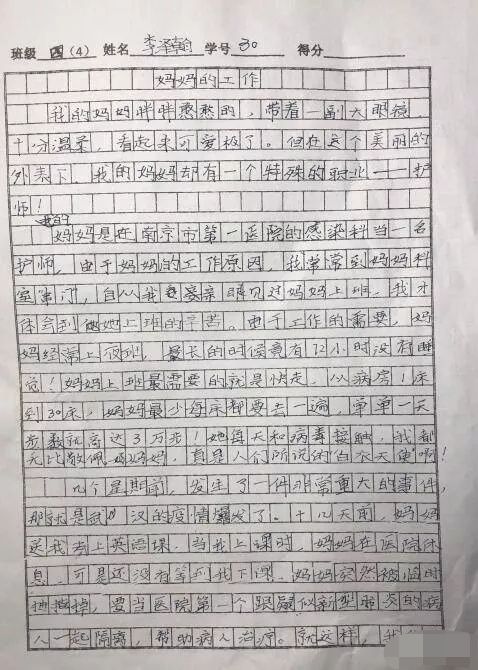 班级 四（4） 姓名 李泽翰 学号 30 得分
妈妈的工作
我的妈妈胖胖憨憨的，带着一副大眼镜，
十分温柔，看起来可爱极了。但在这个美丽的
外表下，我的妈妈却有一个特殊的职业——护
师！
我的妈妈是在南京市第一医院的感染科当一名
护师，由于妈妈的工作原因，我常常到妈妈科
室串门，自从我亲眼见过妈妈上班，我才
体会到她上班的辛苦。由于工作的需要，妈
妈经常上夜班，最长的时候竟有12小时没有睡
觉！妈妈上班最需要的就是快走，从病房1床
到30床，妈妈最少每床都要去一遍，单单一天
步数就高达3万步！她每天和病毒接触，我都
无比敬佩妈妈，真是人们所说的“白衣天使”啊！
几个星期前，发生了一件非常重大的事件，
那就是武汉的疫情爆发了。十几天前，妈妈
送我去上英语课，当我上课时，妈妈在医院休
息，可是还没有等到我下课，妈妈突然被临时
，要当医院第一个跟疑似新型肺炎的病
人一起隔离，帮助病人治疗。就这样，我